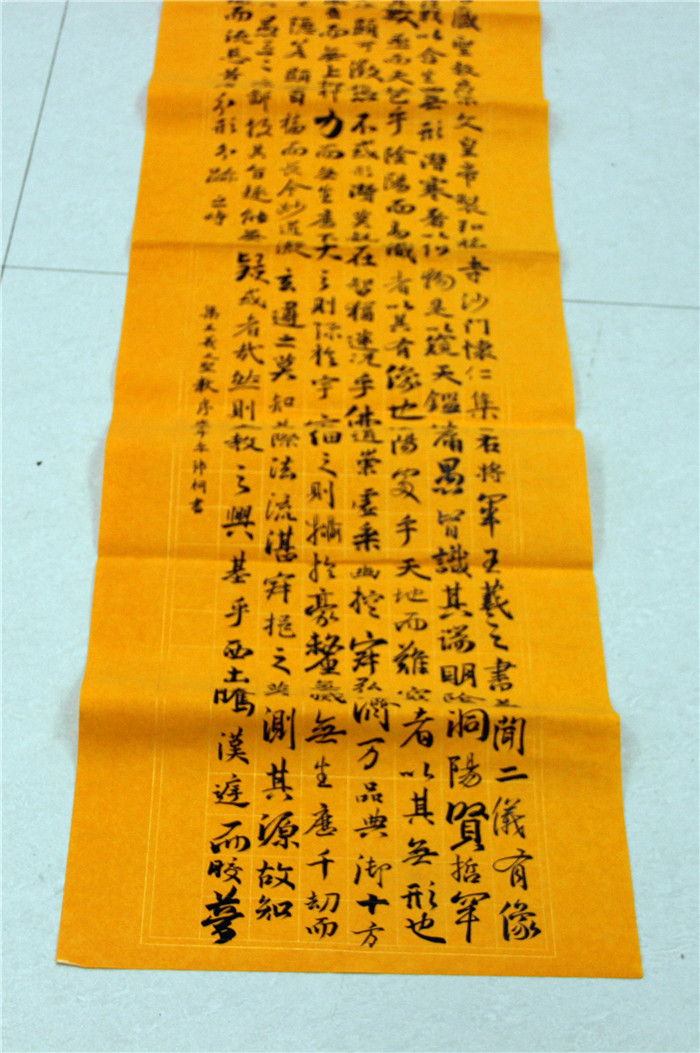 藏聖教文皇帝製弘福寺沙門懷仁集右將軍王羲之書蓋聞二儀有像
以含生無形潛寒暑以化物是以窺天鑑庸愚皆識其端明陰洞陽賢哲罕
數然而天苞乎陰陽而易識者以其有像也陽處乎天地而難窮者以其無形也
顯可徵愚不惑形潛莫覩在智猶迷況乎佛道崇虛乘幽控寂弘濟万品典御十方
靈而無上抑力而無下大之則彌於宇宙細之則攝於豪釐無滅無生歷千劫而
隱若顯百福而長今妙道凝玄遵之莫知其際法流湛寂挹之莫測其源故知
愚之鄙投其旨趣能無疑惑者哉然則教之興基乎西土騰漢庭而皎夢
而流慈昔分形分跡之時
集王羲之聖教序書